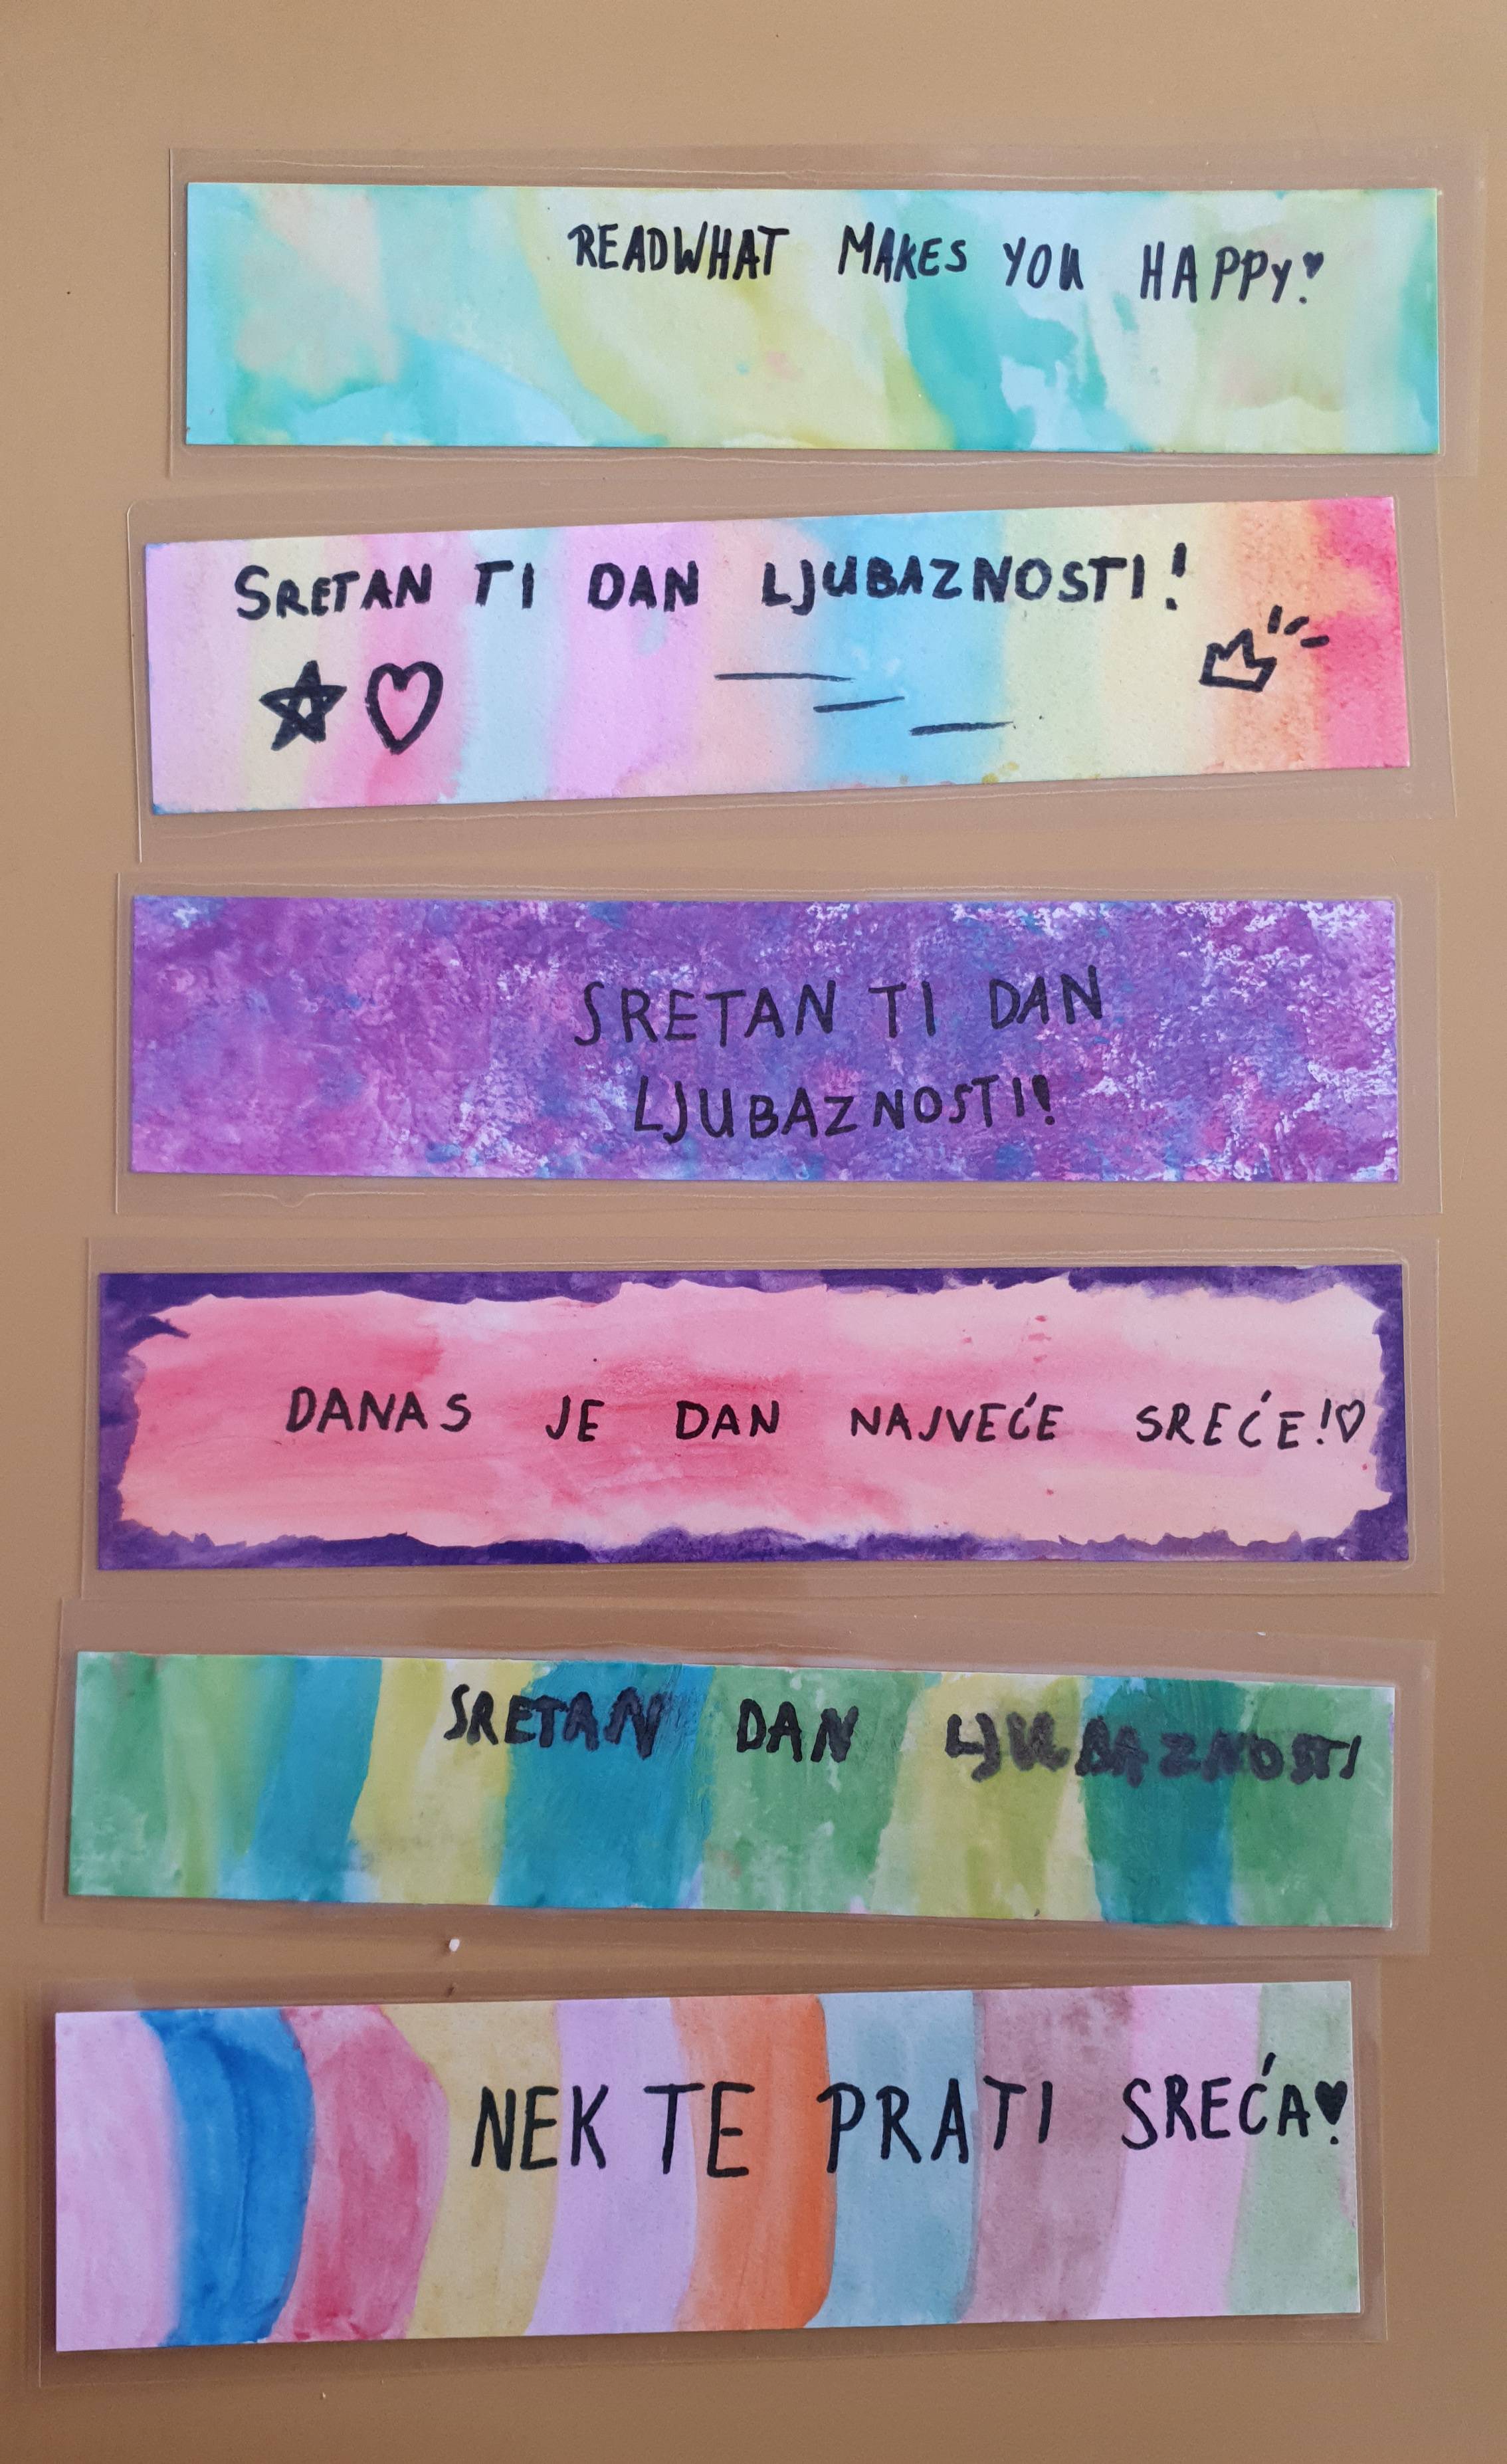 READWHAT MAKES YOU HAPPY!
SRETAN TI DAN LJUBAZNOSTI!
SRETAN TI DAN
LJUBAZNOSTI!
DANAS JE DAN NAJVEĆE SREĆE!♡
SRETAN DAN LJUBAZNOSTI
NEK TE PRATI SREĆA!